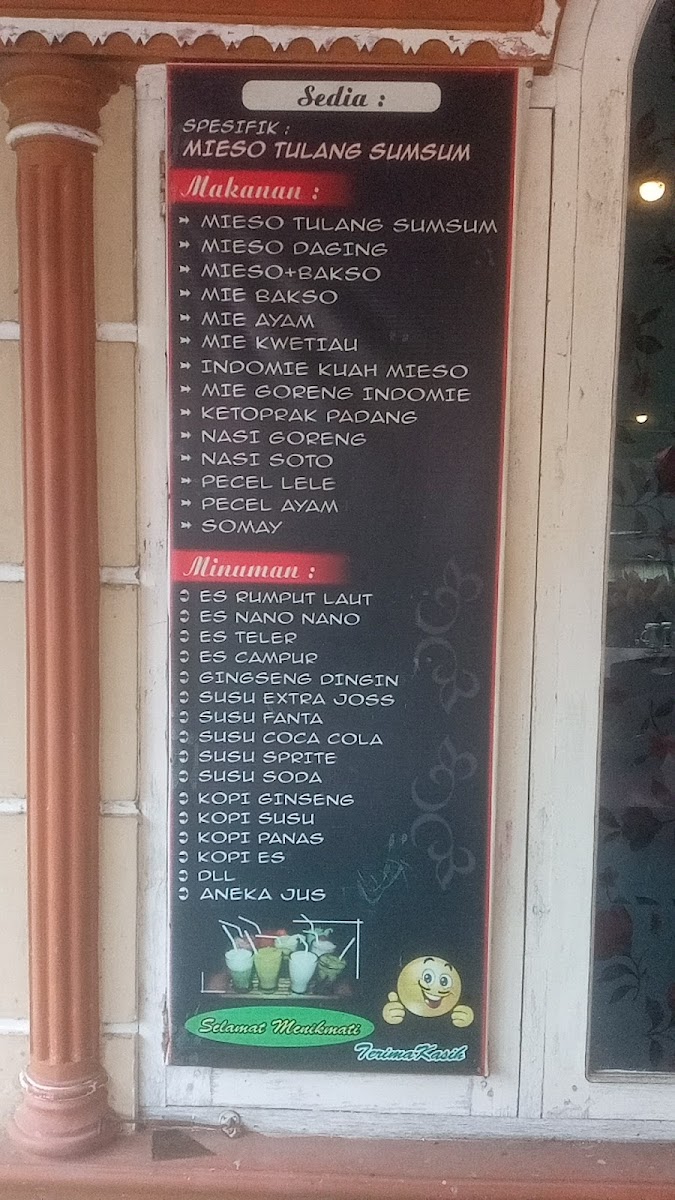 Sedia :
SPESIFIK :
MIESO TULANG SUMSUM
Makanan :
MIESO TULANG SUMSUM
MIESO DAGING
MIESO+BAKSO
MIE BAKSO
MIE AYAM
MIE KWETIAU
INDOMIE KUAH MIESO
MIE GORENG INDOMIE
KETOPRAK PADANG
NASI GORENG
NASI SOTO
PECEL LELE
PECEL AYAM
SOMAY
Minuman :
ES RUMPUT LAUT
ES NANO NANO
ES TELER
ES CAMPUR
GINGSENG DINGIN
SUSU EXTRA JOSS
SUSU FANTA
SUSU COCA COLA
SUSU SPRITE
SUSU SODA
KOPI GINSENG
KOPI SUSU
KOPI PANAS
KOPI ES
DLL
ANEKA JUS
Selamat Menikmati
TerimaKasih